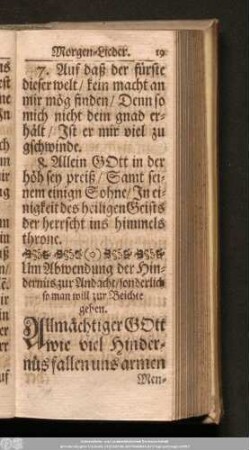 Morgen-Lieder. 19
7. Auf daß der fürste
dieser welt / kein macht an
mir mög finden / Denn so
mich nicht dein gnad er-
hält / Ist er mir viel zu
gschwinde.
8. Allein GOtt in der
höh sey preiß / Samt sei-
nem einign Sohne / In ei-
nigkeit des heiligen Geists
der herrscht ins himmels
throne.
Um Abwendung der Hin-
dernüs zur Andacht / sonderlich
so man will zur Beichte
gehen.
Allmächtiger GOtt
wie viel Hinder-
nüs fallen uns armen
Men-